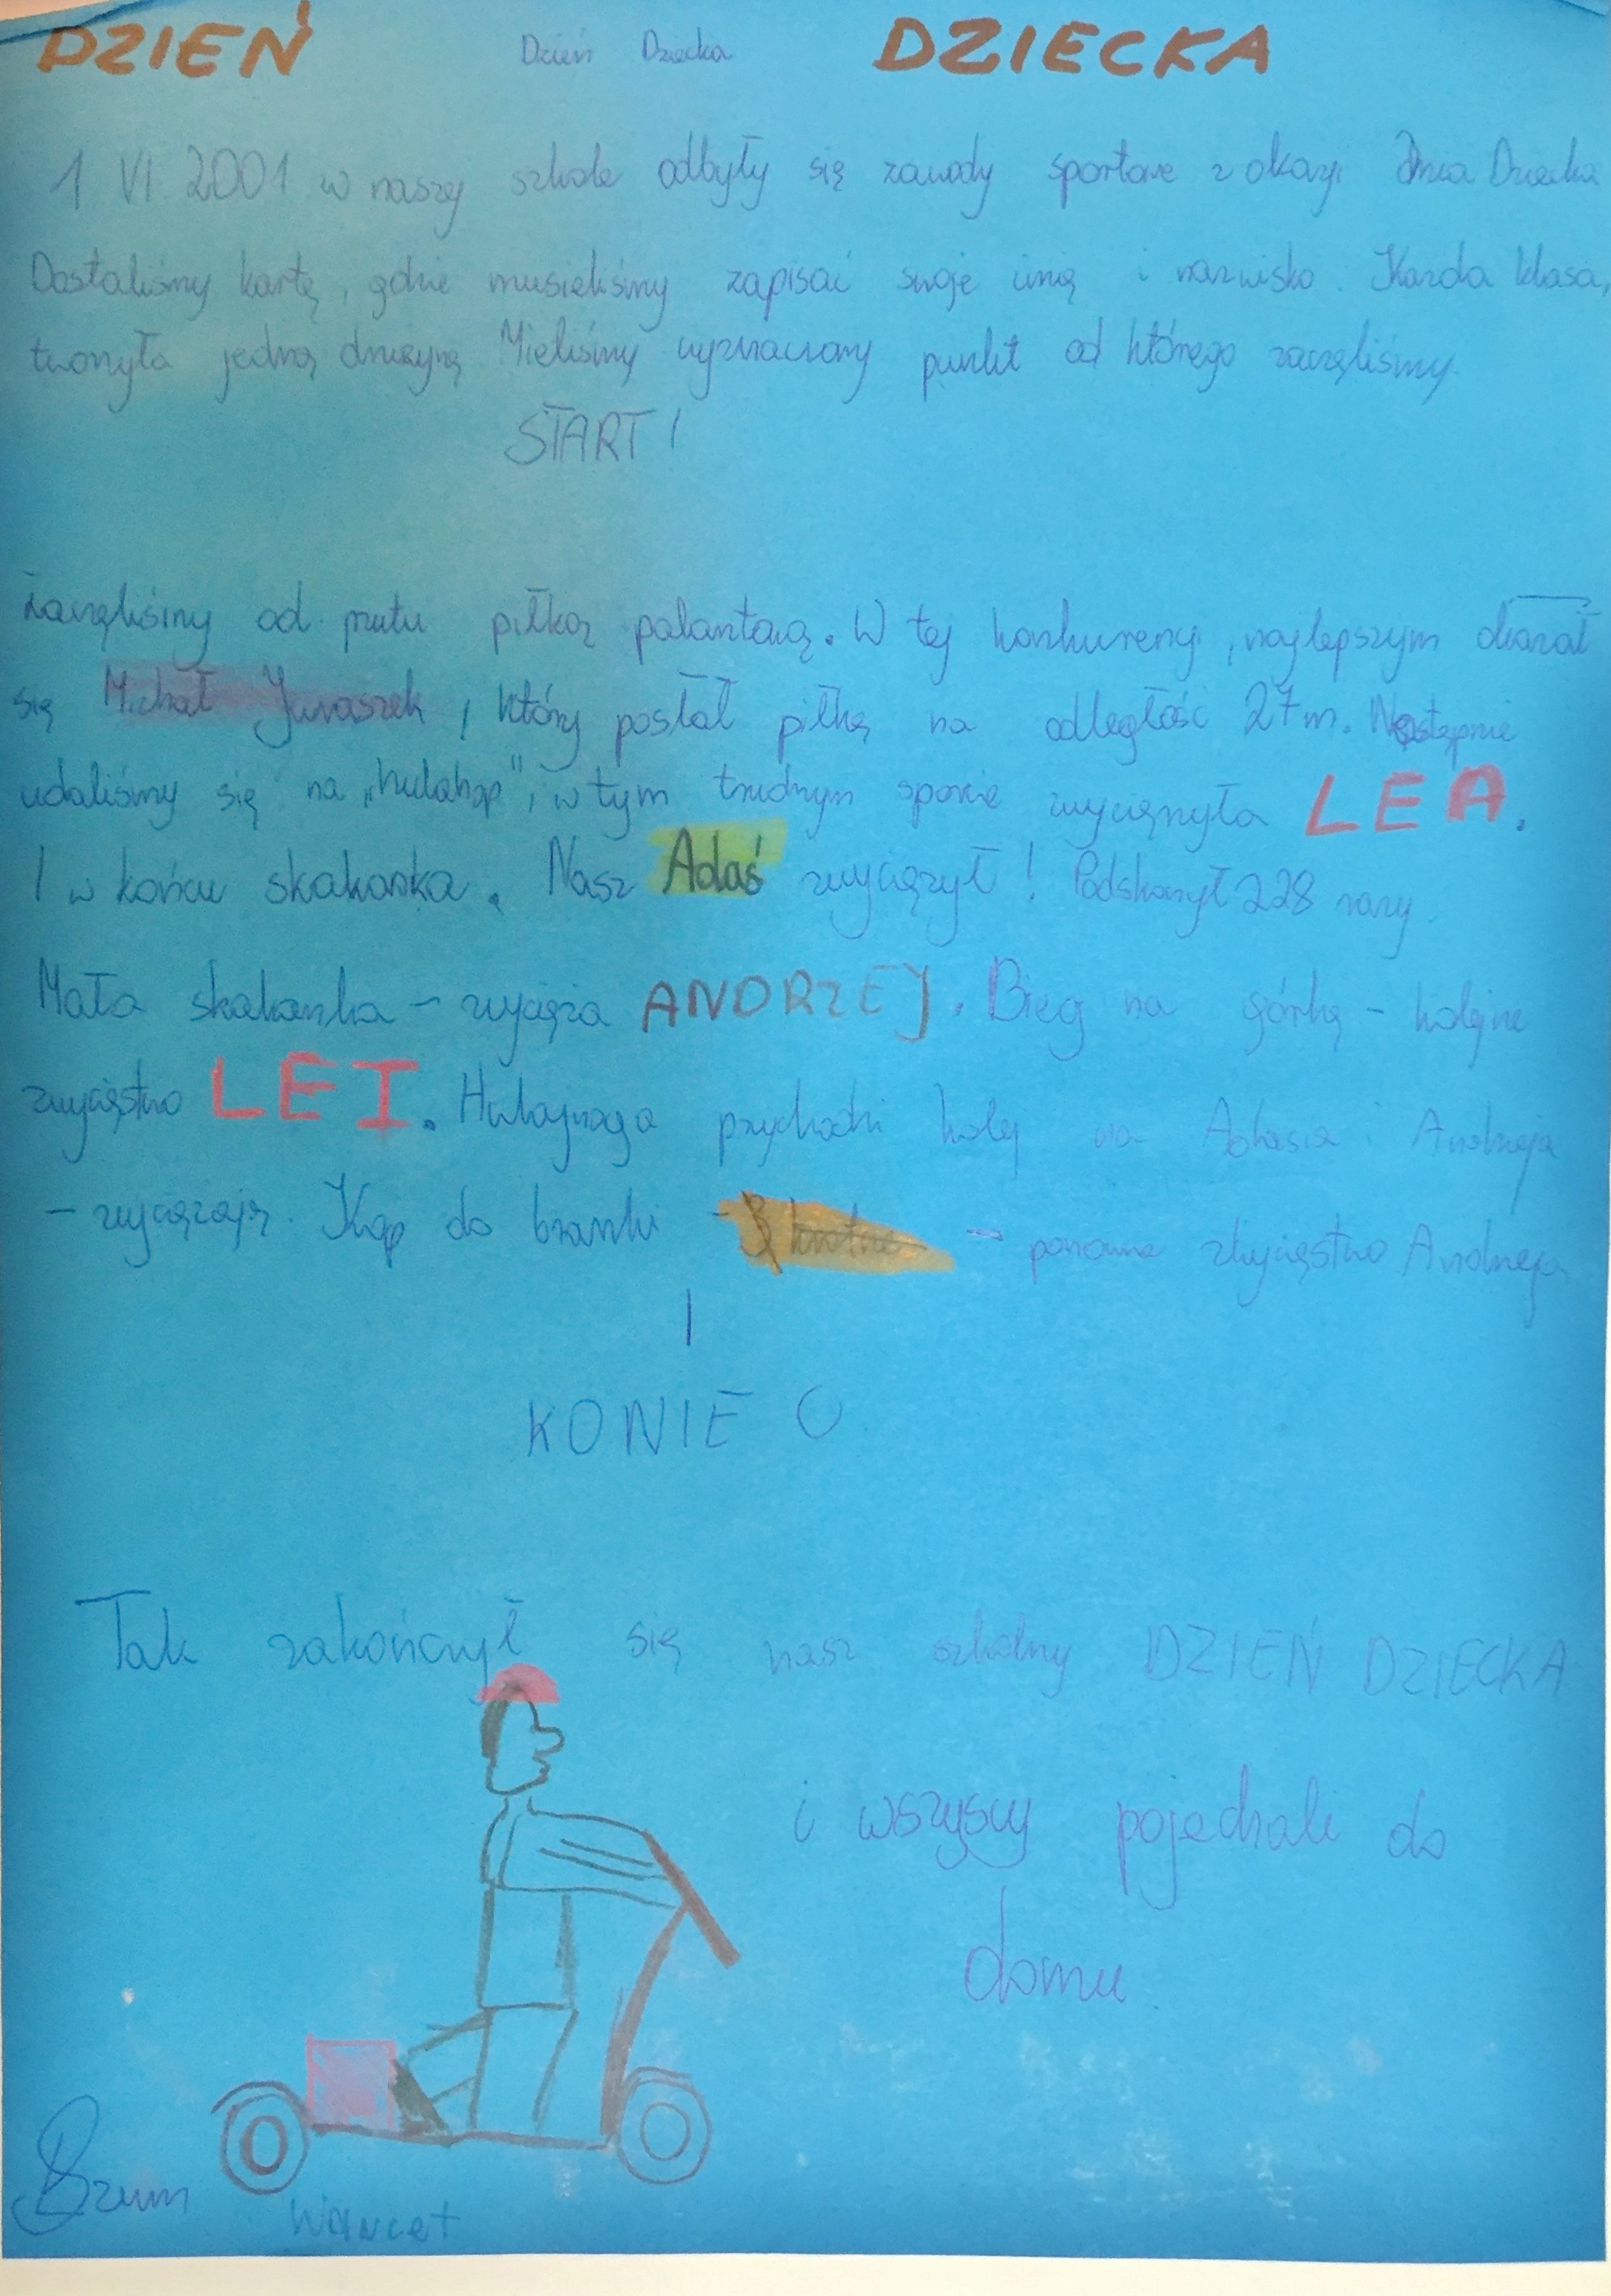 DZIEŃ Dzień Dziecka DZIECKA
1 VI 2001 w naszej szkole odbyły się zawody sportowe z okazji Dnia Dziecka
Dostaliśmy kartę, gdzie musieliśmy zapisać swoje imię i nazwisko. Każda klasa,
tworzyła jedną drużynę. Mieliśmy wyznaczony punkt od którego zaczęliśmy.
START!
Zaczęliśmy od rzutu piłką palantową. W tej konkurencji, najlepszym okazał
się Michał Juraszek, który posłał piłkę na odległość 27m. Następnie
udaliśmy się na „hulahop", w tym trudnym sporcie zwyciężyła LEA.
I w końcu skakanka. Nasz Adaś zwyciężył! Podskoczył 228 razy.
Mała skakanka – zwycięża ANDRZEJ. Bieg na górkę – kolejne
zwycięstwo LEI. Hulajnoga przychodzi kolej na Adasia i Andrzeja
– zwyciężają. Kop do bramki – – ponowne zwycięstwo Andrzeja
I
KONIEC
Tak zakończył się nasz szkolny DZIEŃ DZIECKA
i wszyscy pojechali do
domu.
Brum